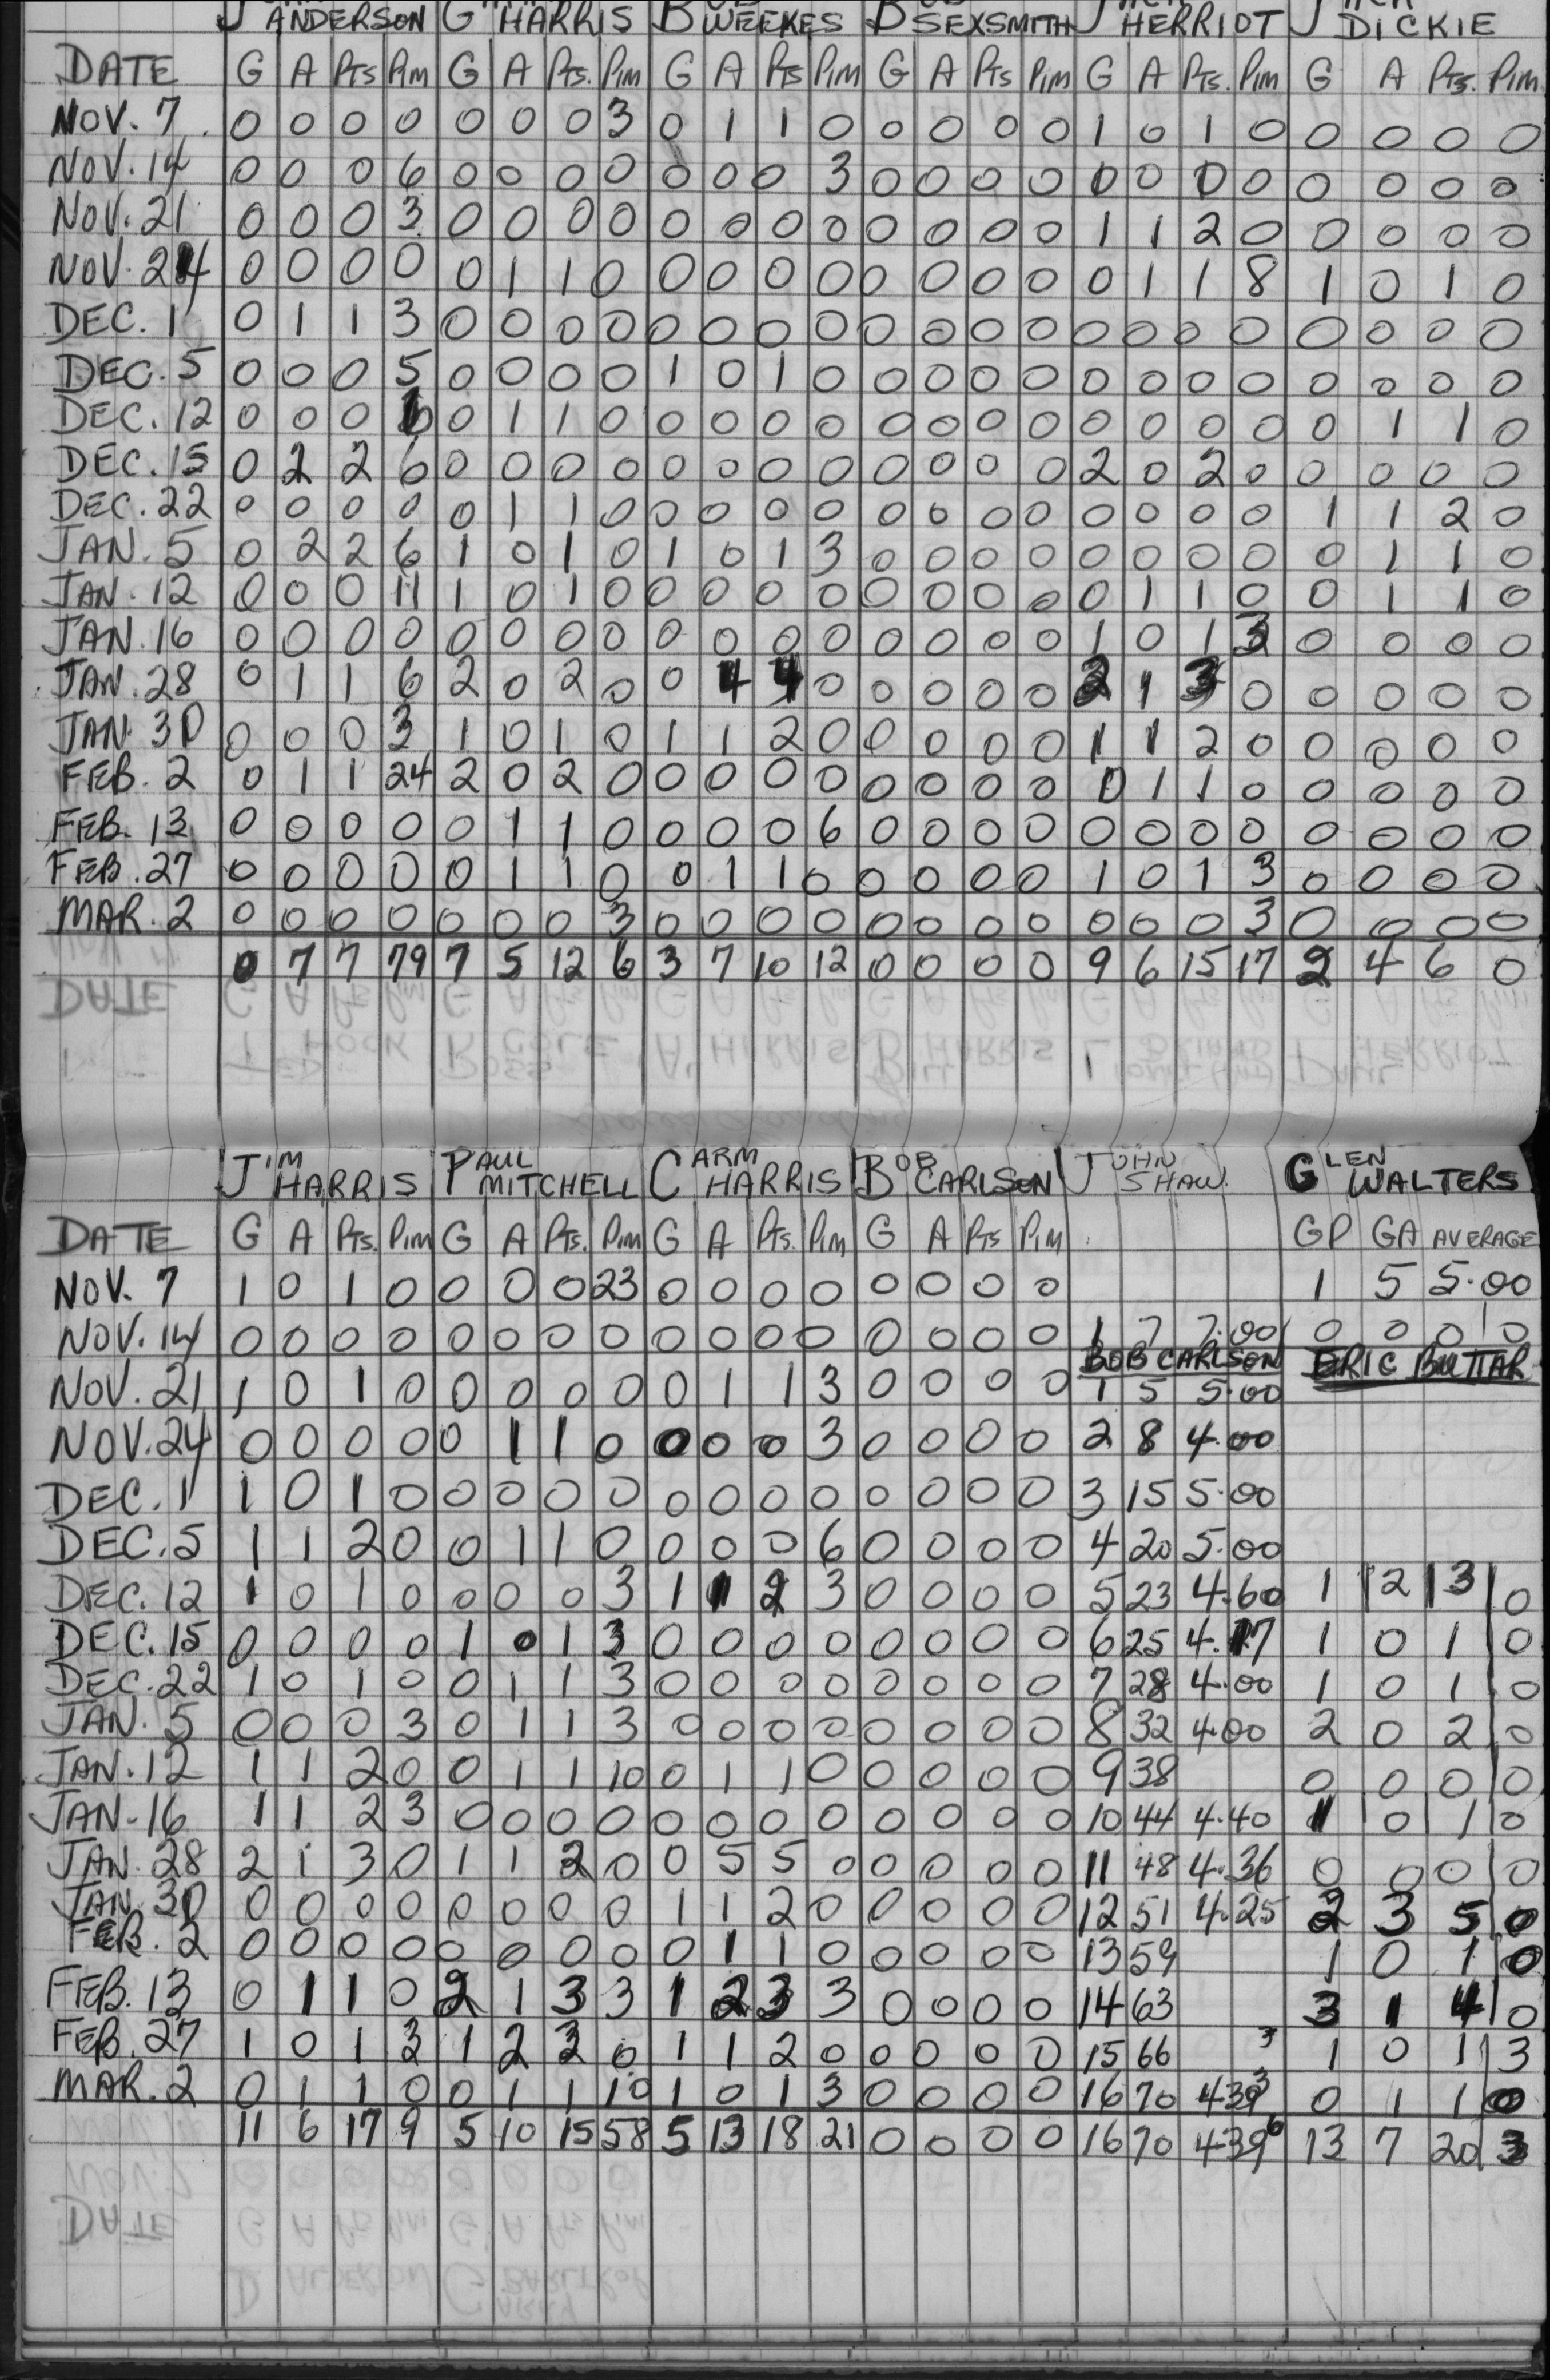 ANDERSON G HARRIS B WEEKES B SEXSMITH J HERRIOT J DICKIE
DATE G A PTS PIM G A PTS. PIM G A PTS PIM G A PTS PIM G A PTS. PIM G A PTS. PIM
NOV. 7 0 0 0 0 0 0 0 3 0 1 1 0 0 0 0 0 1 0 1 0 0 0 0 0
NOV. 14 0 0 0 6 0 0 0 0 0 0 0 3 0 0 0 0 0 0 0 0 0 0 0 0
NOV. 21 0 0 0 3 0 0 0 0 0 0 0 0 0 0 0 0 1 1 2 0 0 0 0 0
NOV. 24 0 0 0 0 0 1 1 0 0 0 0 0 0 0 0 0 0 1 1 8 1 0 1 0
DEC. 1 0 1 1 3 0 0 0 0 0 0 0 0 0 0 0 0 0 0 0 0 0 0 0 0
DEC. 5 0 0 0 5 0 0 0 0 1 0 1 0 0 0 0 0 0 0 0 0 0 0 0 0
DEC. 12 0 0 0 0 1 1 0 0 0 0 0 0 0 0 0 0 0 0 0 0 1 1 0
DEC. 15 0 2 2 6 0 0 0 0 0 0 0 0 0 0 0 0 2 0 2 0 0 0 0 0
DEC. 22 0 0 0 0 0 1 1 0 0 0 0 0 0 0 0 0 0 0 0 0 1 1 2 0
JAN. 5 0 2 2 6 1 0 1 0 1 0 1 3 0 0 0 0 0 0 0 0 0 1 1 0
JAN. 12 0 0 0 11 1 0 1 0 0 0 0 0 0 0 0 0 0 1 1 0 0 1 1 0
JAN. 16 0 0 0 0 0 0 0 0 0 0 0 0 0 0 0 0 1 0 1 3 0 0 0 0
JAN. 28 0 1 1 6 2 0 2 0 0 4 4 0 0 0 0 0 2 1 3 0 0 0 0 0
JAN. 30 0 0 0 3 1 0 1 0 1 1 2 0 0 0 0 0 1 1 2 0 0 0 0 0
FEB. 2 0 1 1 24 2 0 2 0 0 0 0 0 0 0 0 0 0 1 1 0 0 0 0 0
FEB. 13 0 0 0 0 0 1 1 0 0 0 0 6 0 0 0 0 0 0 0 0 0 0 0 0
FEB. 27 0 0 0 0 0 1 1 0 0 1 1 0 0 0 0 0 1 0 1 3 0 0 0 0
MAR. 2 0 0 0 0 0 0 0 3 0 0 0 0 0 0 0 0 0 0 0 3 0 0 0 0
0 7 7 79 7 5 12 6 3 7 10 12 0 0 0 0 9 6 15 17 2 4 6 0
JIM HARRIS PAUL MITCHELL CARM HARRIS BOB CARLSON JOHN SHAW. GLEN WALTERS
DATE G A PTS. PIM G A PTS. PIM G A PTS. PIM G A PTS PIM GP GA AVERAGE
NOV. 7 1 0 1 0 0 0 0 23 0 0 0 0 0 0 0 0 1 5 5.00
NOV. 14 0 0 0 0 0 0 0 0 0 0 0 0 0 0 0 0 1 7 7.00 0 0 0 0
BOB CARLSON ERIC BUTTAR
NOV. 21 1 0 1 0 0 0 0 0 0 1 1 3 0 0 0 0 1 5 5.00
NOV. 24 0 0 0 0 0 1 1 0 0 0 0 3 0 0 0 0 2 8 4.00
DEC. 1 1 0 1 0 0 0 0 0 0 0 0 0 0 0 0 0 3 15 5.00
DEC. 5 1 1 2 0 0 1 1 0 0 0 0 6 0 0 0 0 4 20 5.00
DEC. 12 1 0 1 0 0 0 0 3 1 1 2 3 0 0 0 0 5 23 4.60 1 2 3 0
DEC. 15 0 0 0 0 1 0 1 3 0 0 0 0 0 0 0 0 6 25 4.17 1 0 1 0
DEC. 22 1 0 1 0 0 1 1 3 0 0 0 0 0 0 0 0 7 28 4.00 1 0 1 0
JAN. 5 0 0 0 3 0 1 1 3 0 0 0 0 0 0 0 0 8 32 4.00 2 0 2 0
JAN. 12 1 1 2 0 0 1 1 10 0 1 1 0 0 0 0 0 9 38 0 0 0 0
JAN. 16 1 1 2 3 0 0 0 0 0 0 0 0 0 0 0 0 10 44 4.40 1 0 1 0
JAN. 28 2 1 3 0 1 1 2 0 0 5 5 0 0 0 0 0 11 48 4.36 0 0 0 0
JAN. 30 0 0 0 0 0 0 0 0 1 1 2 0 0 0 0 0 12 51 4.25 2 3 5 0
FEB. 2 0 0 0 0 0 0 0 0 0 1 1 0 0 0 0 0 13 59 1 0 1 0
FEB. 13 0 1 1 0 2 1 3 3 1 2 3 3 0 0 0 0 14 63 3 1 4 0
FEB. 27 1 0 1 3 1 2 3 0 1 1 2 0 0 0 0 0 15 66 3 1 0 1 3
MAR. 2 0 1 1 0 0 1 1 10 1 0 1 3 0 0 0 0 16 70 439 3 0 1 1 0
11 6 17 9 5 10 15 58 5 13 18 21 0 0 0 0 16 70 439 6 13 7 20 3